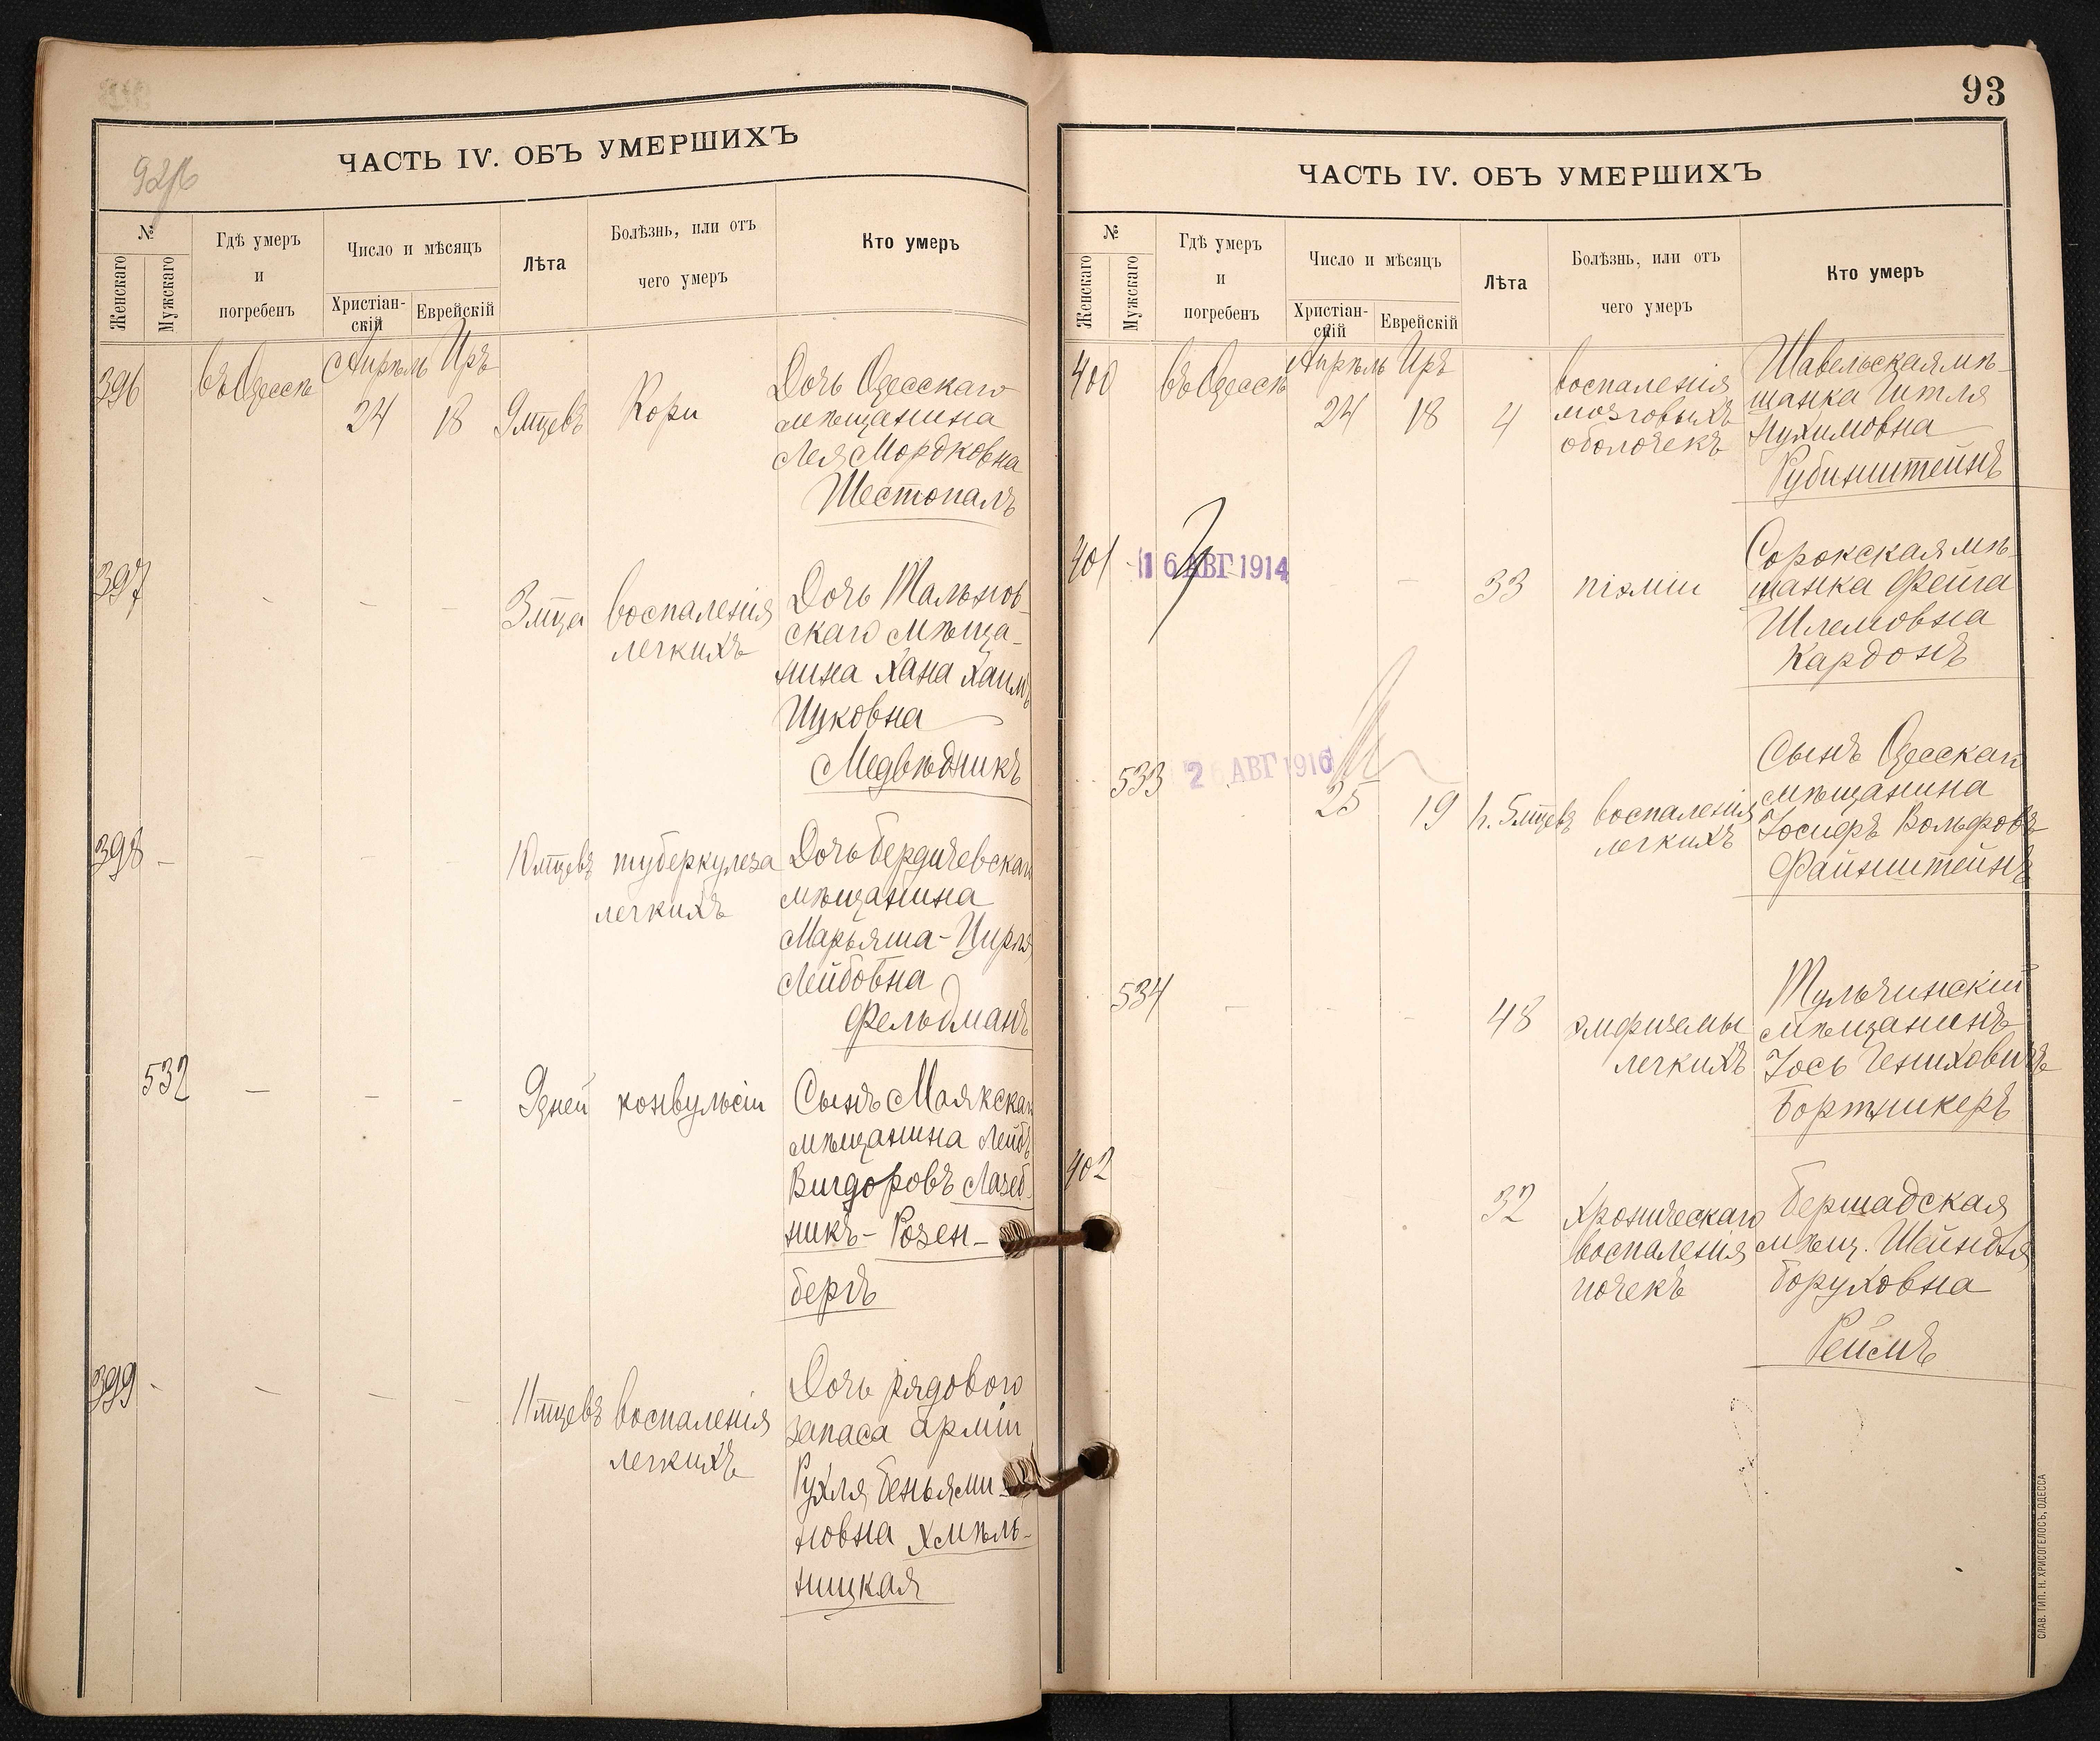 92об
ЧАСТЬ IV. ОБЪ УМЕРШИХЪ
№
Женскаго
Мужскаго
Гдѣ умеръ
и
погребенъ
Число и мѣсяцъ
Христіан-
скій
Еврейскій
Лѣта
Болѣзнь, или отъ
чего умеръ
Кто умеръ
396
въ Одессѣ
Апрѣль Иръ
24 18
9 мцевъ
Кори
Дочь Одесскаго
мѣщанина
Лея Мордковна
Шестопалъ
397
- - -
3 мца
воспаленія
легкихъ
Дочь Тальнов-
скаго мѣща-
нина Хана Хаим
Ицковна
Медвѣдникъ
398 -
- - -
10 мцевъ
туберкулеза
легкихъ
Дочь Бердичевскаго
мѣщанина
Марьяша-Цирля
Лейбовна
Фельдманъ
532
- - -
9 дней
конвульсіи
Сынъ Маякскаго
мѣщанина Лейбъ
Вигдоровъ Лазеб-
никъ-Розен-
бергъ
399 -
- - -
11 мцевъ
воспаленія
легкихъ
Дочь рядового
запаса арміи
Рухля Беньями-
новна Хмѣль-
ницкая
93
ЧАСТЬ IV. ОБЪ УМЕРШИХЪ
№
Женскаго
Мужскаго
Гдѣ умеръ
и
погребенъ
Число и мѣсяцъ
Христіан-
скій
Еврейскій
Лѣта
Болѣзнь, или отъ
чего умеръ
Кто умеръ
400
въ Одессѣ
Апрѣль Иръ
24 18
4
воспаленія
мозговыхъ
оболочекъ
Шавельская мѣ-
щанка Итля
Нухимовна
Рубинштейнъ
401 -
16 АВГ 1914
- -
33
піэміи
Сорокская мѣ-
щанка Фейга
Шлемовна
Кардонъ
533
26 АВГ 1916
25 19
5 мцевъ
воспаленія
легкихъ
Сынъ Одесскаго
мѣщанина
Іосифъ Вольфовъ
Файнштейнъ
534
- - -
48
эмфиземы
легкихъ
Тульчинскій
мѣщанинъ
Іось Гениховичъ
Бортникеръ
402
32
хроническаго
воспаленія
почекъ
Бершадская
мѣщ. Шейндля
Боруховна
Рейсмъ
СЛАВ. ТИП. Н. ХРИСОГЕЛОСЪ, ОДЕССА